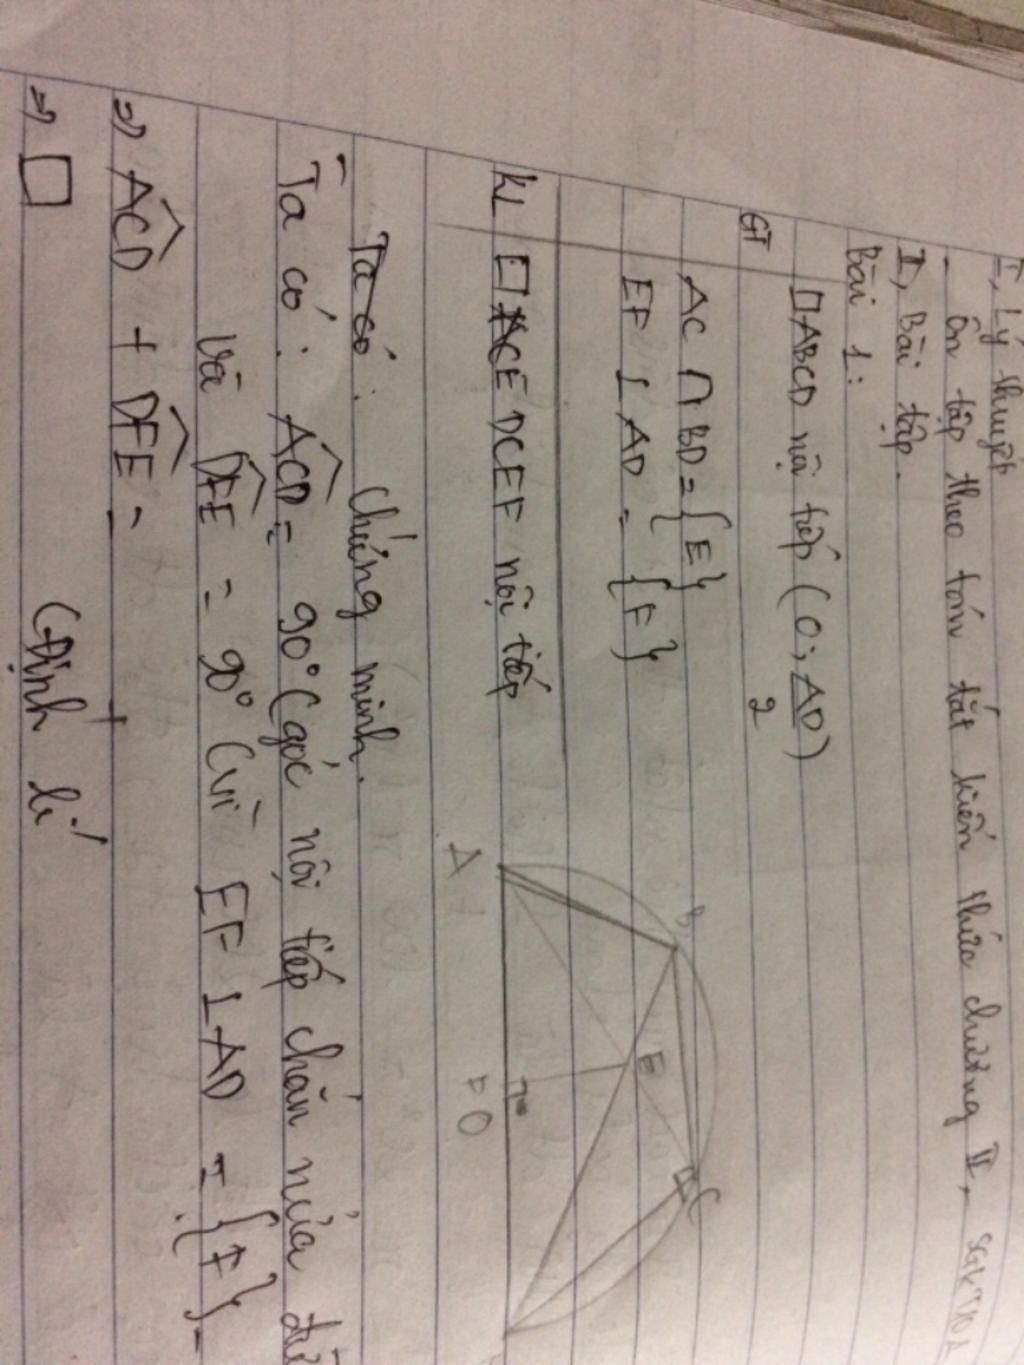 I, Lý thuyết
- Ôn tập theo tóm tắt kiến thức chương II, SGK T102
II, Bài tập.
Bài 1:
GT □ABCD nội tiếp (O; AD/2)
AC ∩ BD = {E}
EF ⊥ AD = {F}
KL □ DCEF nội tiếp
Chứng minh.
Ta có:
Ta có: ACD = 90° (góc nội tiếp chắn nửa
Và DFE = 90° (vì EF ⊥ AD = {F}
=> ACD + DFE =
=> □ (Định lí
A
B
E
C
F O